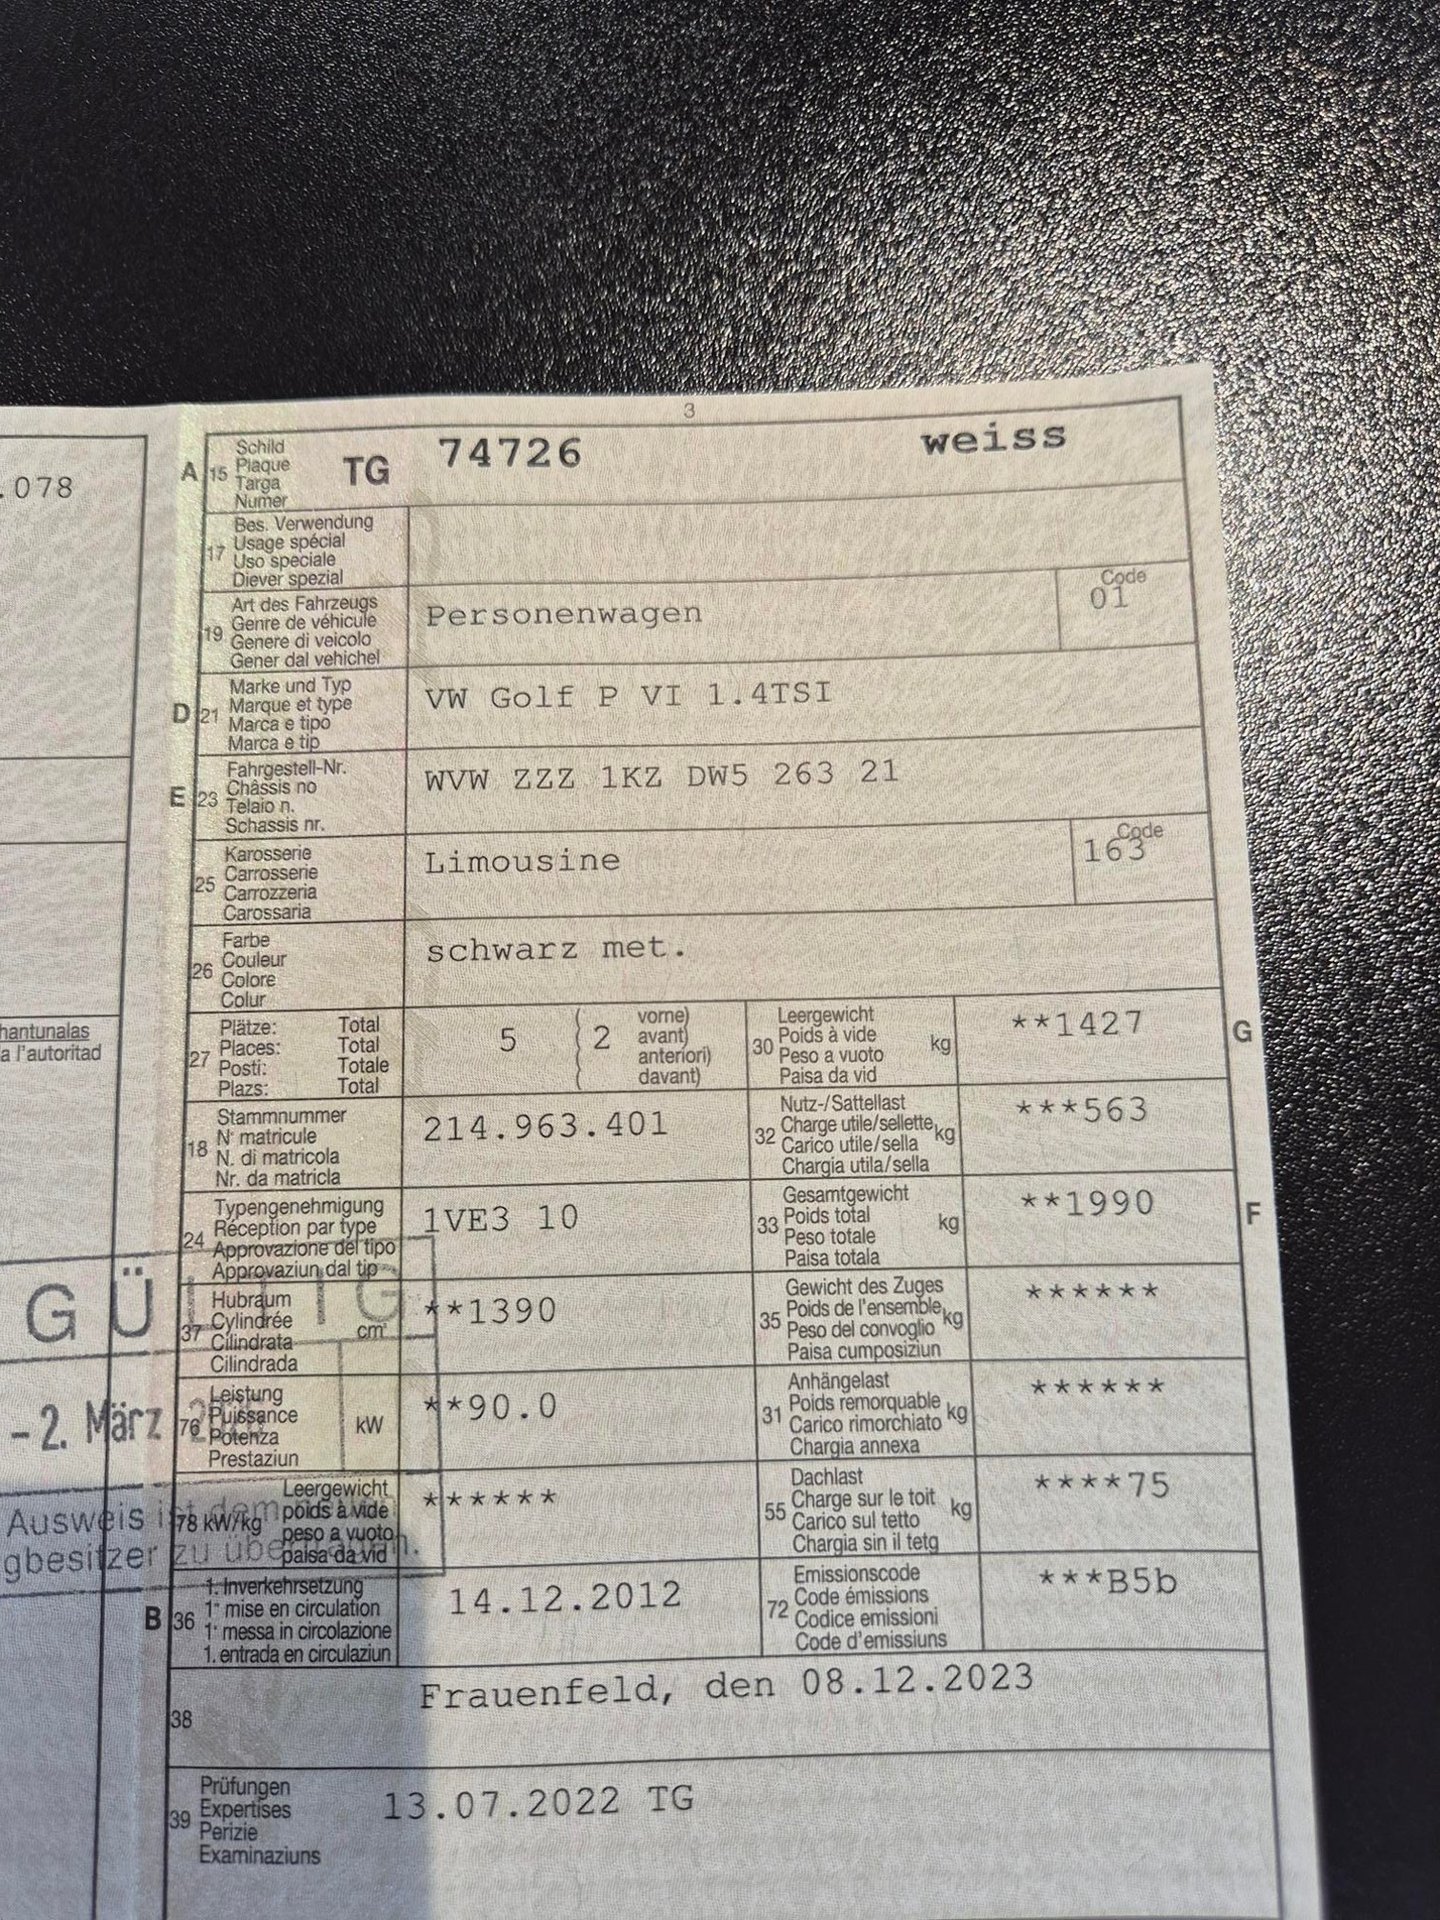 3
.078
A 15 Schild
Plaque
Targa
Numer
TG 74726 weiss
17 Bes. Verwendung
Usage spécial
Uso speciale
Diever spezial
19 Art des Fahrzeugs
Genre de véhicule
Genere di veicolo
Gener dal vehichel
Personenwagen
Code
01
D 21 Marke und Typ
Marque et type
Marca e tipo
Marca e tip
VW Golf P VI 1.4TSI
E 23 Fahrgestell-Nr.
Châssis no
Telaio n.
Schassis nr.
WVW ZZZ 1KZ DW5 263 21
25 Karosserie
Carrosserie
Carrozzeria
Carossaria
Limousine
Code
163
26 Farbe
Couleur
Colore
Colur
schwarz met.
hantunalas
a l'autoritad
27 Plätze: Total
Places: Total
Posti: Totale
Plazs: Total
5 ( 2 vorne)
( avant)
( anteriori)
( davant)
30 Leergewicht
Poids à vide
Peso a vuoto
Paisa da vid
kg
**1427
G
18 Stammnummer
N° matricule
N. di matricola
Nr. da matricla
214.963.401
32 Nutz-/Sattellast
Charge utile/sellette
Carico utile/sella
Chargia utila/sella
kg
***563
24 Typengenehmigung
Réception par type
Approvazione del tipo
Approvaziun dal tip
1VE3 10
33 Gesamtgewicht
Poids total
Peso totale
Paisa totala
kg
**1990
F
37 Hubraum
Cylindrée
Cilindrata
Cilindrada
cm³
**1390
35 Gewicht des Zuges
Poids de l'ensemble
Peso del convoglio
Paisa cumposiziun
kg
******
76 Leistung
Puissance
Potenza
Prestaziun
kW
**90.0
31 Anhängelast
Poids remorquable
Carico rimorchiato
Chargia annexa
kg
******
78 kW/kg Leergewicht
poids à vide
peso a vuoto
paisa da vid
******
55 Dachlast
Charge sur le toit
Carico sul tetto
Chargia sin il tetg
kg
****75
B 36 1. Inverkehrsetzung
1e mise en circulation
1a messa in circolazione
1. entrada en circulaziun
14.12.2012
72 Emissionscode
Code émissions
Codice emissioni
Code d'emissiuns
***B5b
38 Frauenfeld, den 08.12.2023
39 Prüfungen
Expertises
Perizie
Examinaziuns
13.07.2022 TG
-2. März
Ausweis ist dem
gbesitzer zu